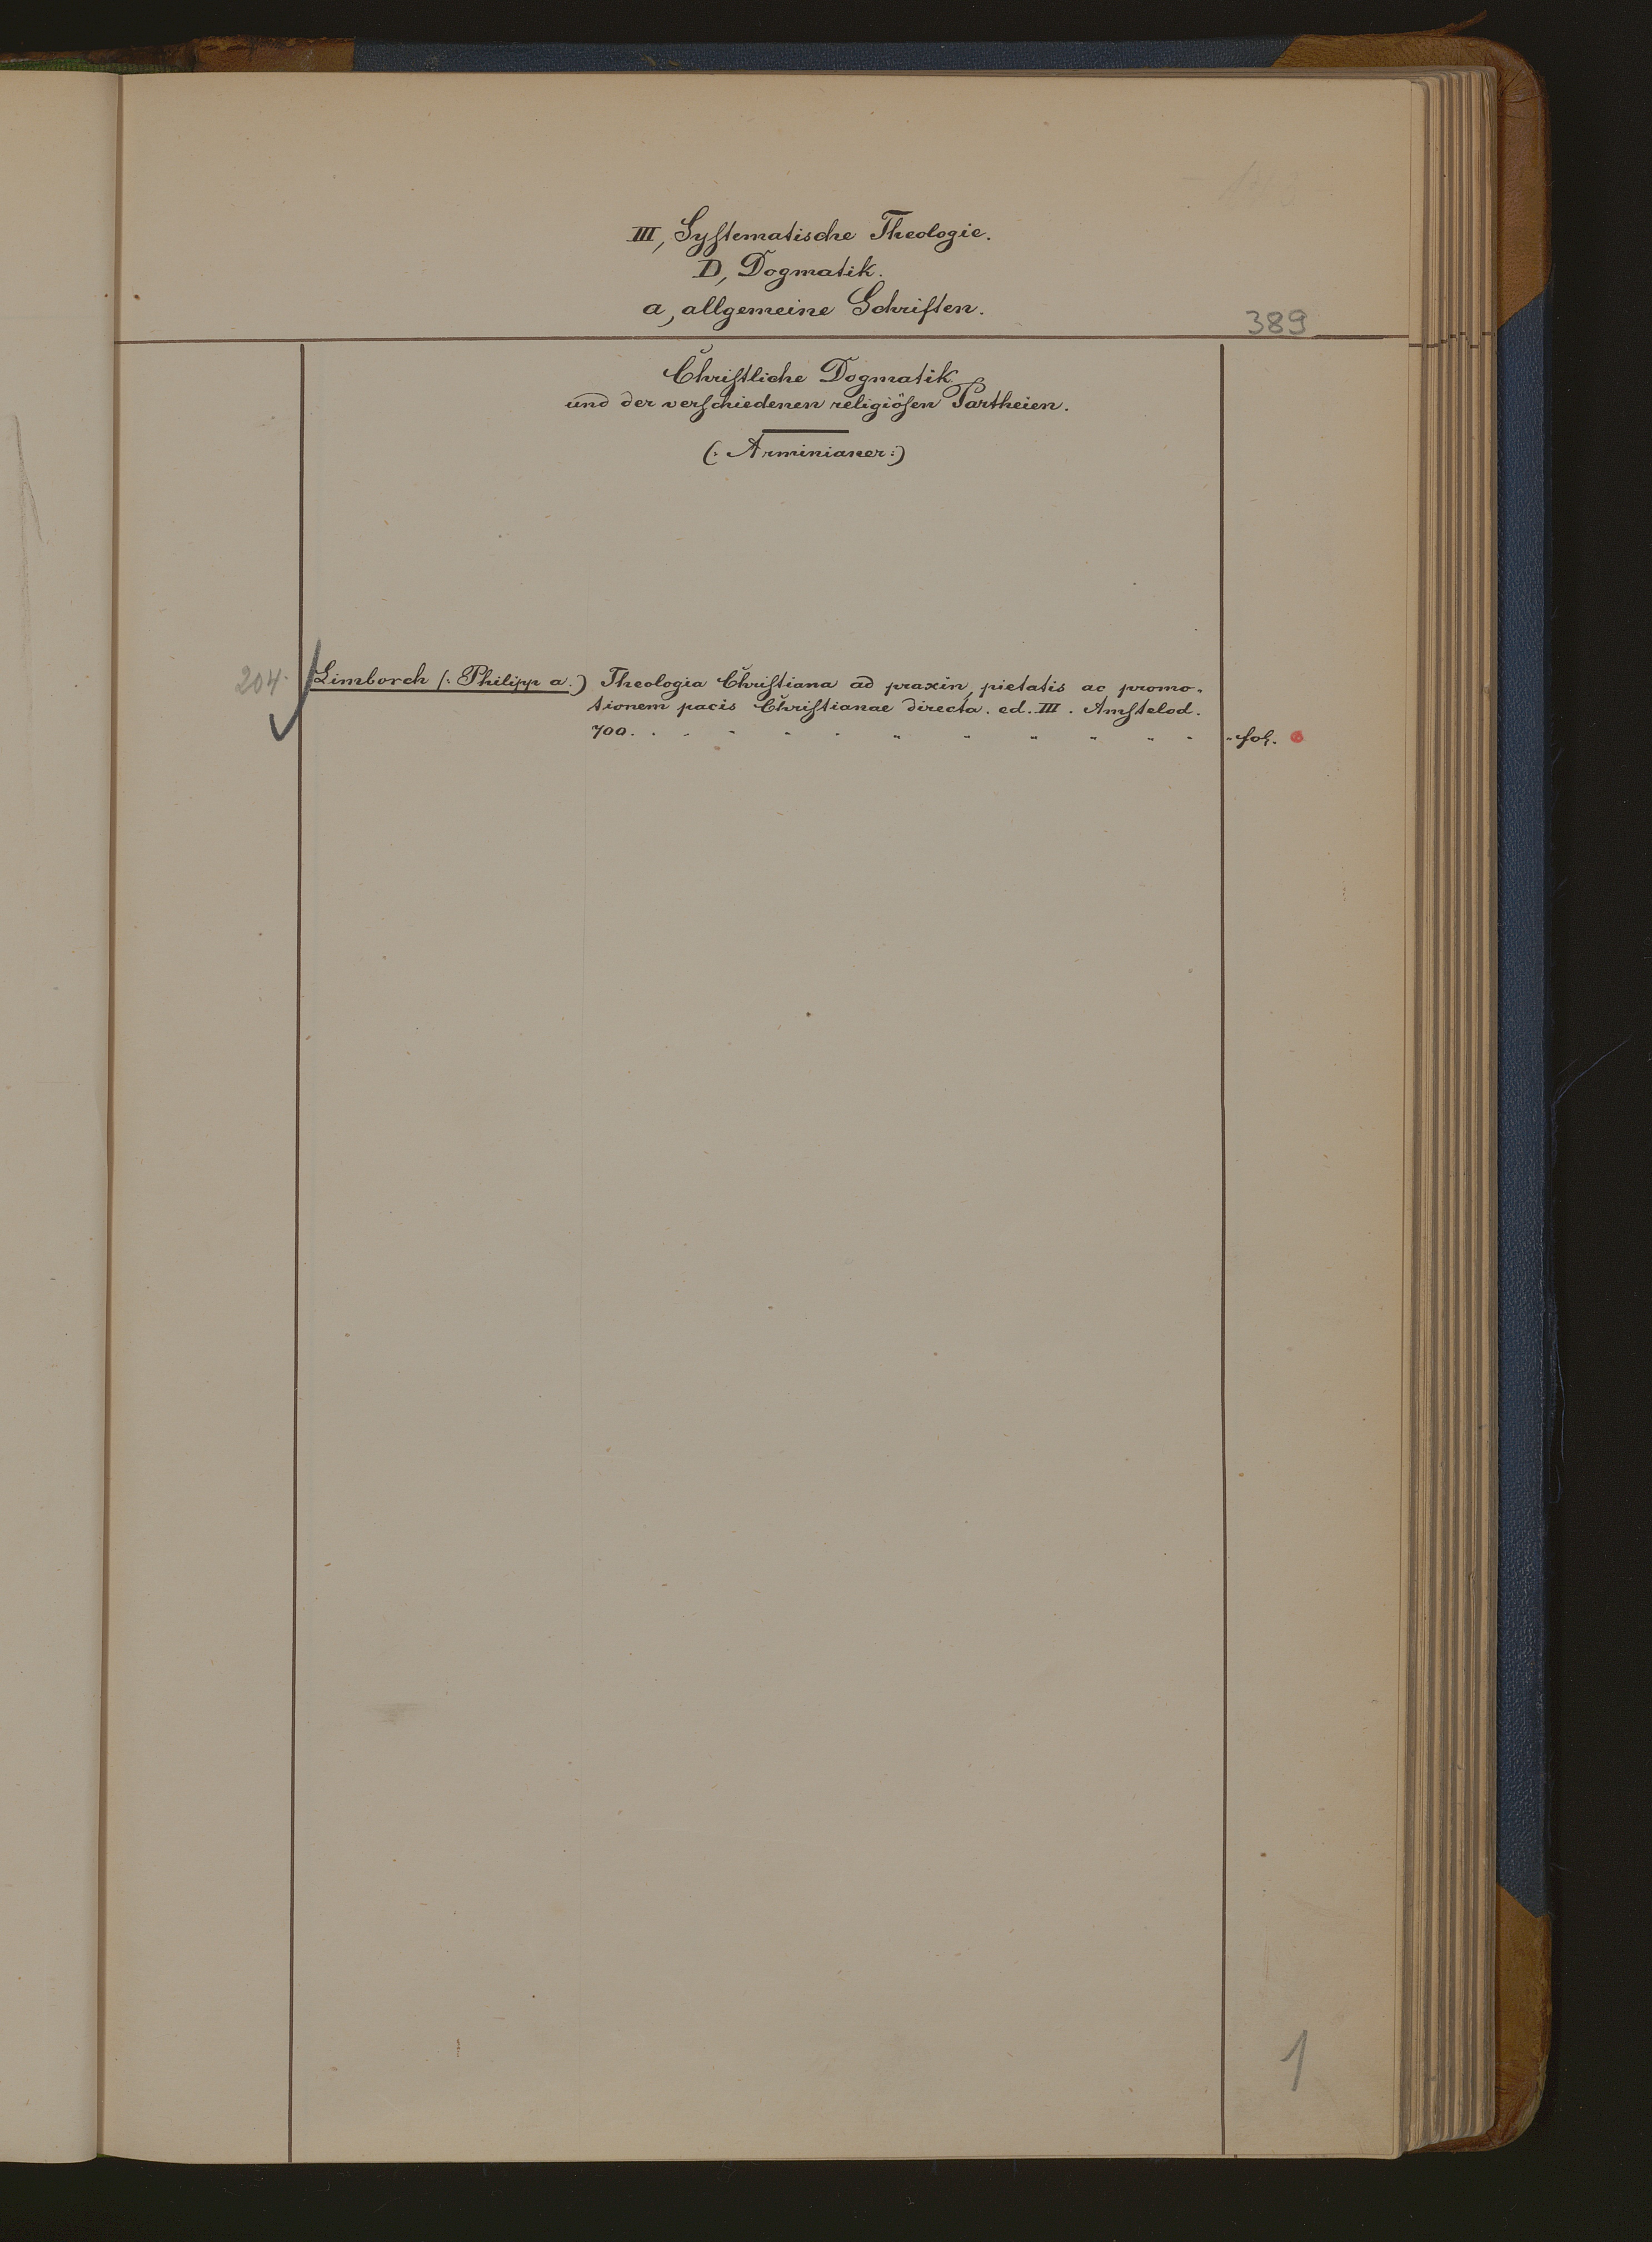 III, Systematische Theologie.
D, Dogmatik.
a, allgemeine Schriften.
389
Christliche Dogmatik
und der verschiedenen religiösen Partheien.
(: Arminianer :)
204. Limborch (: Philipp a :) Theologia Christiana ad praxin pietatis ac promo-
tionem pacis Christianae directa. ed. III. Amstelod.
700. fol.
1